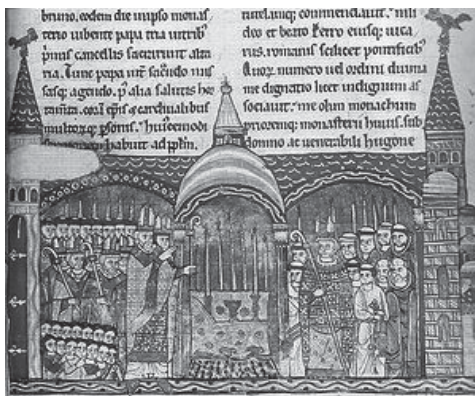 bruno. eodem die in ipso monas
terio iubente papa tria in trib;
primis cancellis sacrauit alta
ria. Tunc papa int sacrdo mis
sasq; agendo. p' alia salutis hor
tamta. cora epis & cardinalibus
multorq; psonis. huiscemodi
habuit ad pplm.
tutelamq; commendauit.
deo et beato Petro eiusq; uica
rius. romanis scilicet pontificib;
Quor numero uel ordini diuina
me dignatio licet indignum as
sociauit. me olim monachum
prioremq; monasterii huius. sub
domno ac venerabili hugone